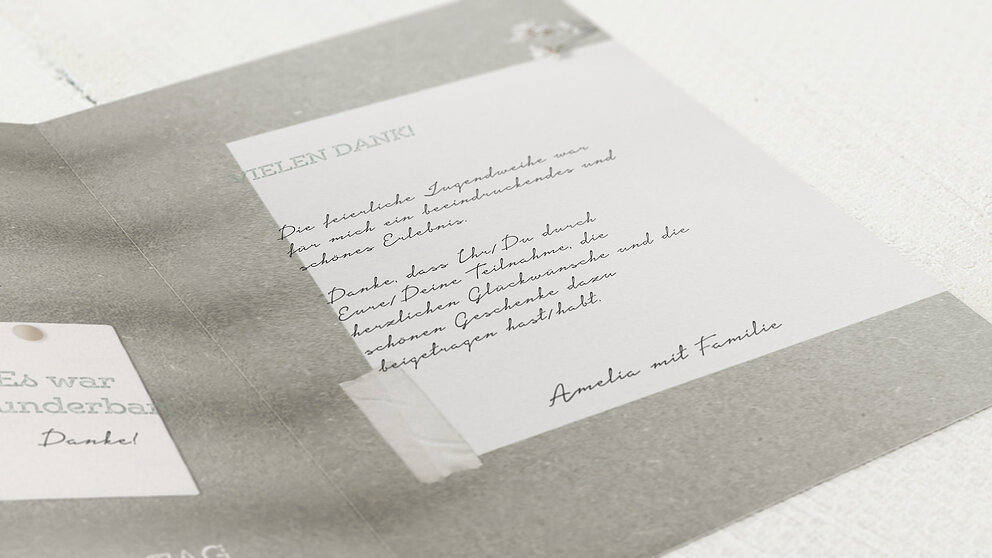 VIELEN DANK!
Die feierliche Jugendweihe war
für mich ein beeindruckendes und
schönes Erlebnis.
Danke, dass Ihr/Du durch
Eure/Deine Teilnahme, die
herzlichen Glückwünsche und die
schönen Geschenke dazu
beigetragen hast/habt.
Amelia mit Familie
Es war
underbar
Danke!
TAG